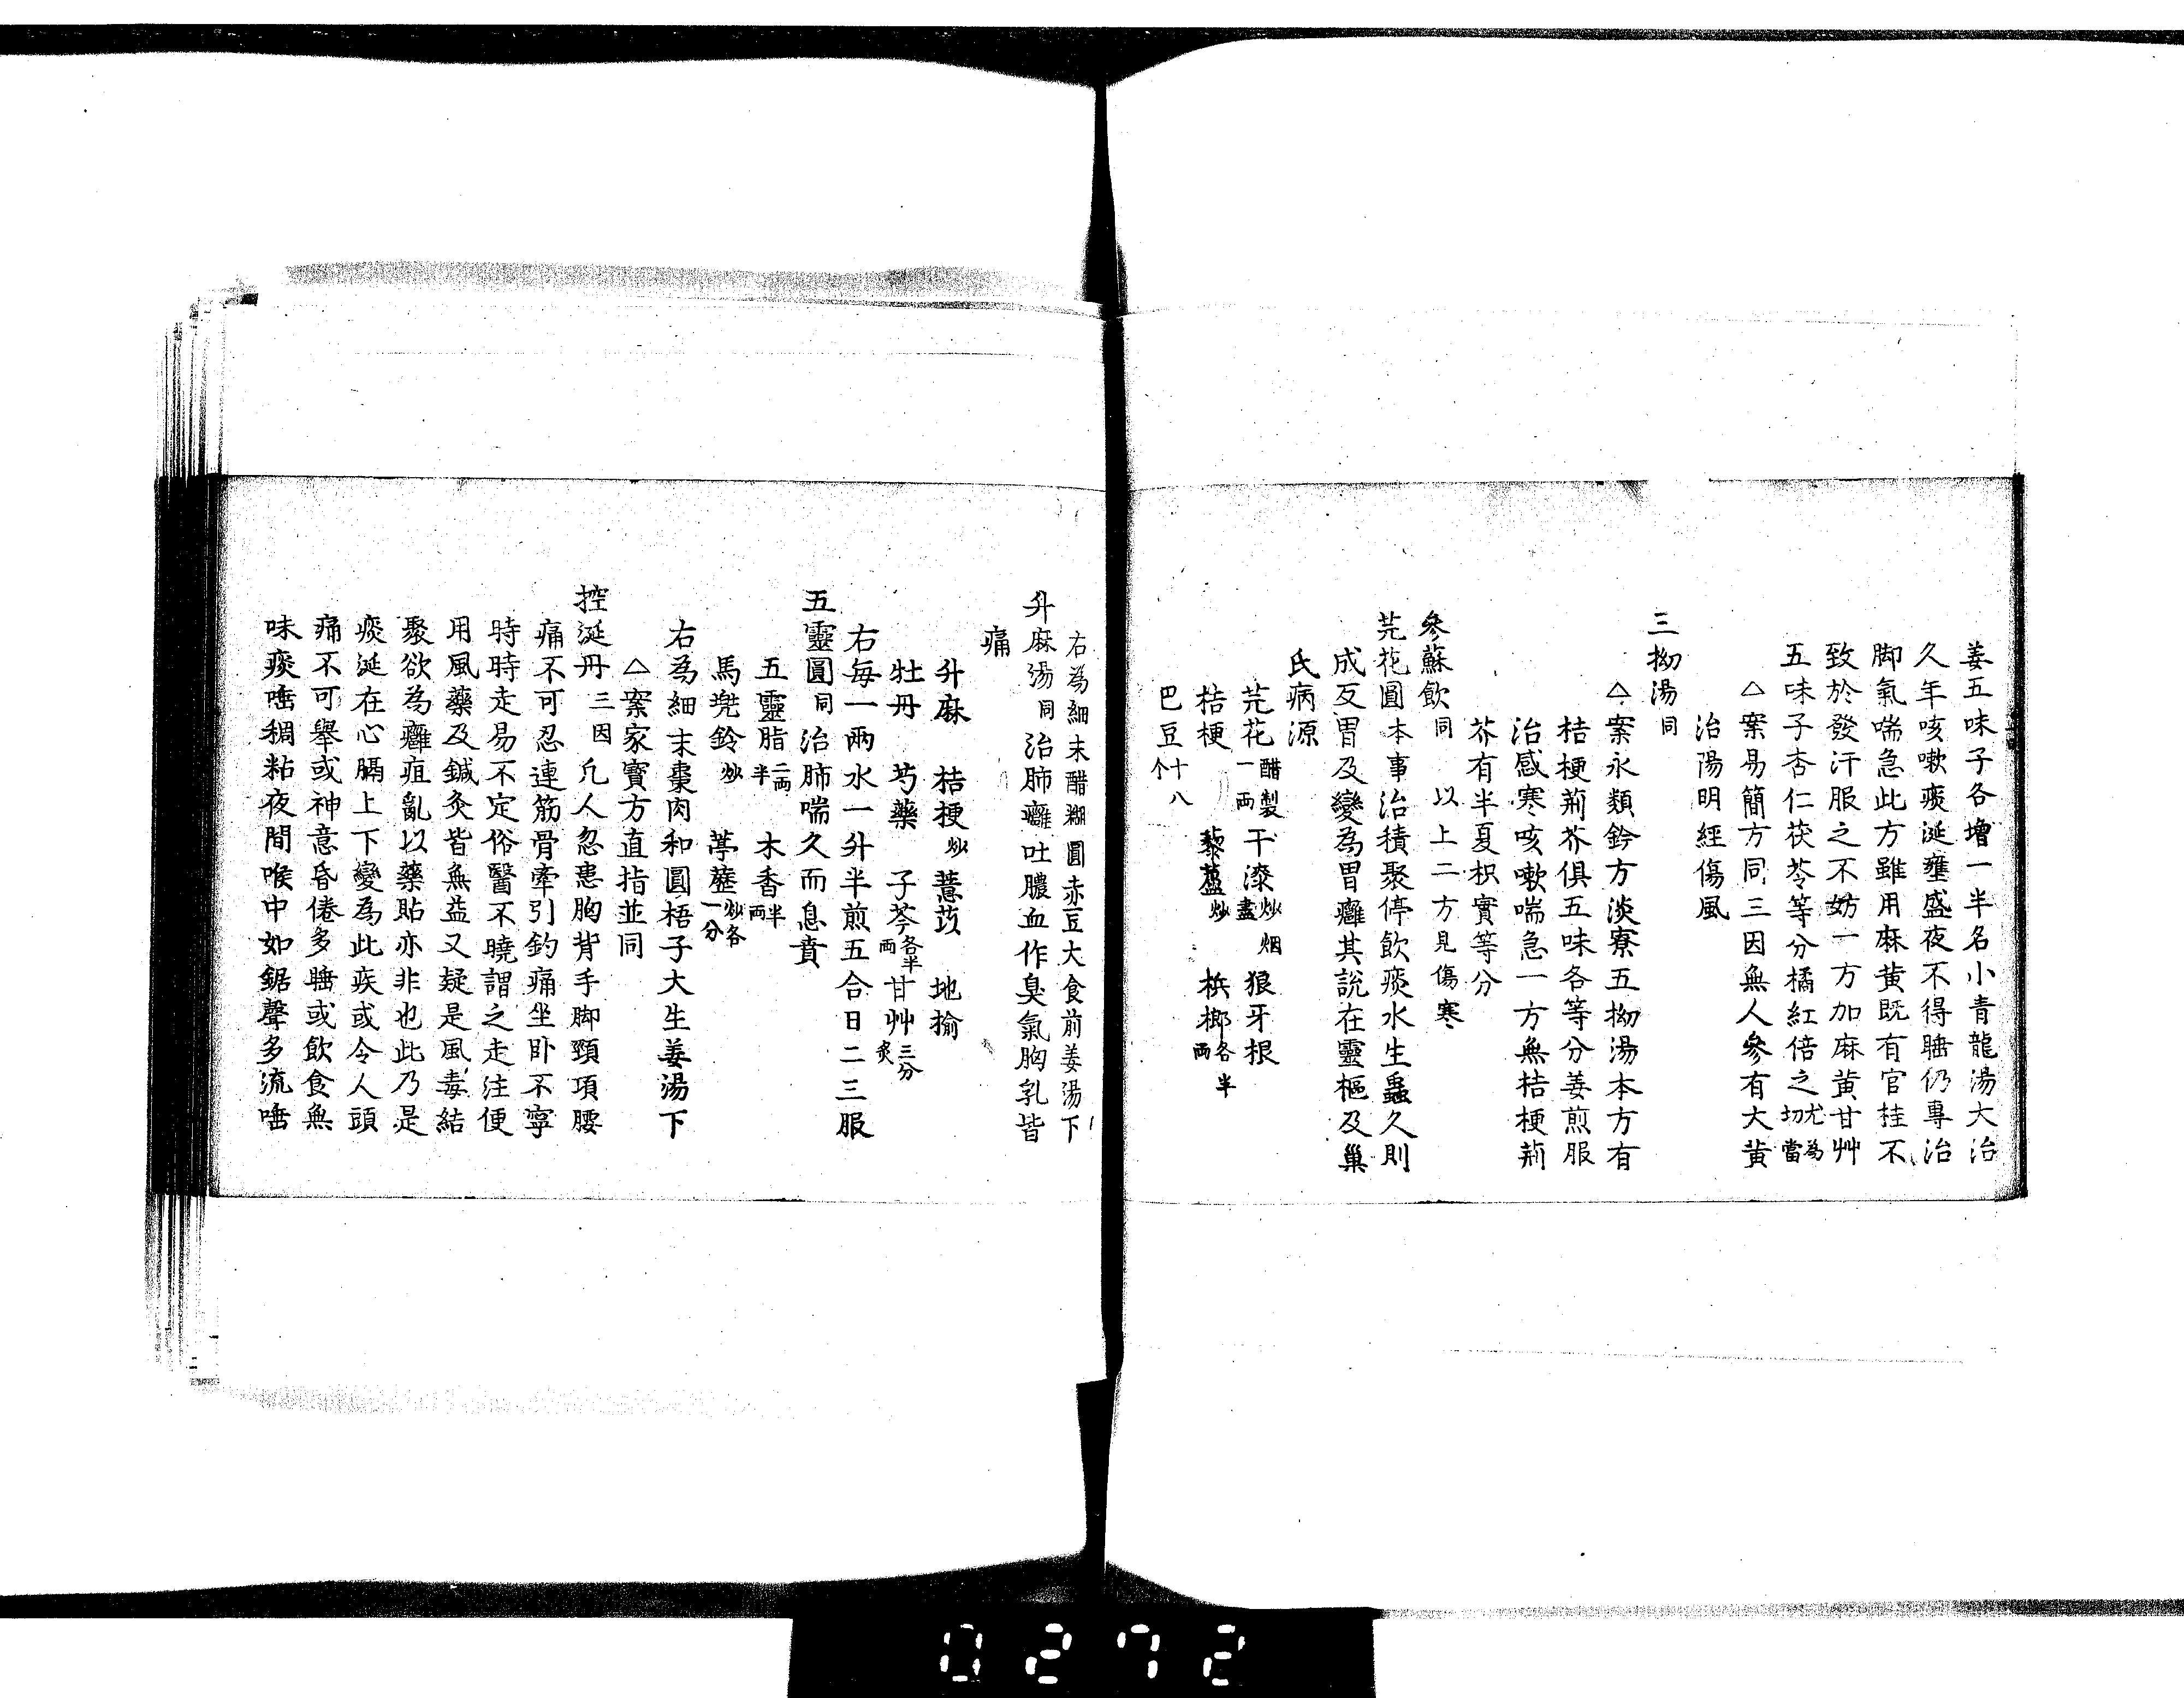 姜五味子各增一半名小青龍湯大治
久年咳嗽痰涎壅盛夜不得睡仍專治
脚氣喘急此方雖用麻黄既有官桂不
致於發汗服之不妨一方加麻黄甘艸
五味子杏仁茯苓等分橘紅倍之尤為切當
△案易簡方同三因無人參有大黄
治陽明經傷風
三拗湯同
△案永類鈐方淡寮五拗湯本方有
桔梗荊芥俱五味各等分姜煎服
治感寒咳嗽喘急一方無桔梗荊
芥有半夏枳實等分
參蘇飲同 以上二方見傷寒
芫花圓本事治積聚停飲痰水生蟲久則
成反胃及變為胃癰其說在靈樞及巢
氏病源
芫花醋製一兩 干漆炒烟盡 狼牙根
桔梗 藜蘆炒 梹榔各半兩
巴豆十八个
右為細末醋糊圓赤豆大食前姜湯下
升麻湯同治肺癰吐膿血作臭氣胸乳皆
痛
升麻 桔梗炒 薏苡 地揄
牡丹 芍藥 子芩各半兩 甘艸三分炙
右每一兩水一升半煎五合日二三服
五靈圓同治肺喘久而息賁
五靈脂二兩半 木香半兩
馬兠鈴炒 葶藶炒各一分
右為細末棗肉和圓梧子大生姜湯下
△案家寳方直指並同
控涎丹三因 凢人忽患胸背手脚頸項腰
痛不可忍連筋骨牽引釣痛坐卧不寧
時時走易不定俗醫不曉謂之走注便
用風藥及鍼灸皆無益又疑是風毒結
聚欲為癰疽亂以藥貼亦非也此乃是
痰涎在心膈上下變為此疾或令人頭
痛不可舉或神意昏倦多睡或飲食無
味痰唾稠粘夜間喉中如鋸聲多流唾
0272